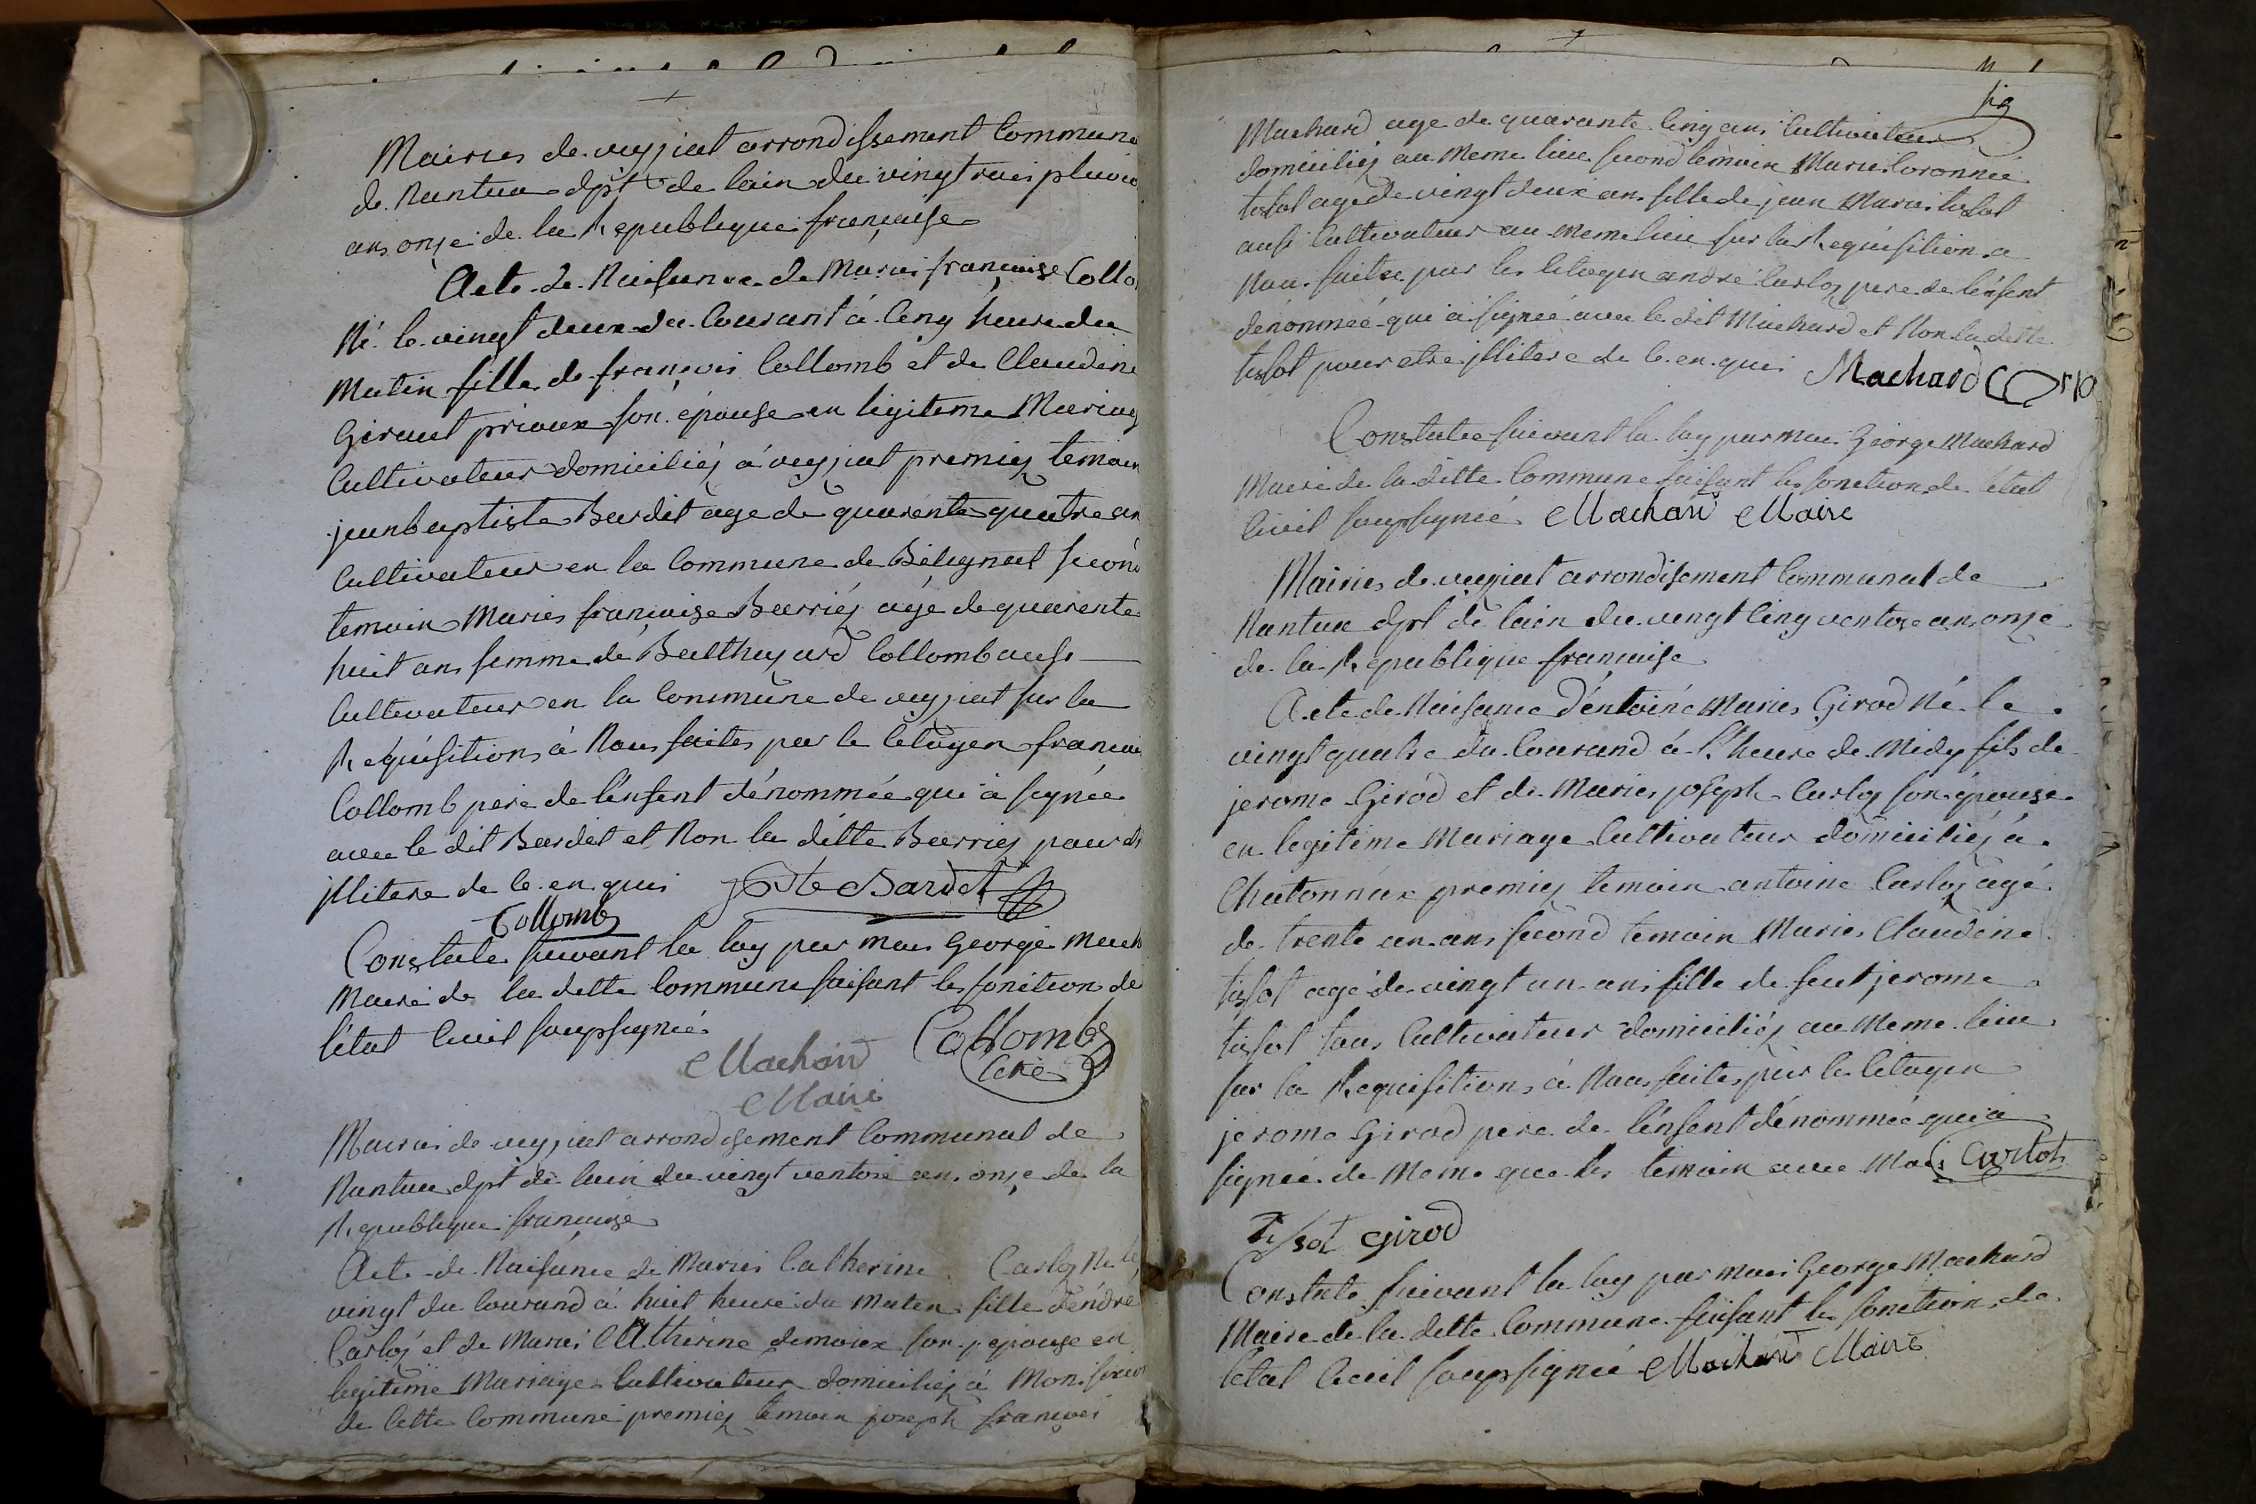 Mairies de veyziat arrondissement Commune
de Nantua dpt de lain du vingtrois pluvio
ans onze de la Republique française
Acte de Naissance de Marie françoise Collo
Né le vingt deux du Courant à Cinq heure du
Matin fille de françois Collomb et de Claudine
Giraut prioux son épouse en legitime Mariag
Cultivateur domiciliéz à veyziat premiez temoin
jeanbaptiste Bardet age de quarente quatre an
Cultivateur en la Commune de Béligneat second
temoin Maries françoise Berriéz agé de quarente
huit ans femme de Balthazard Collomb aussi
Cultivateur en la Commune de veyziat sur la
Requisitions à Nous faites par le Citoyen françoi
Collomb pere de l'enfent dénommée qui à signée
avec le dit Bardet et Non la ditte Berriez pour et
illitere de ce en quis JBte Bardet
Collomb
Constate suivant la loy par mois George Mach
Maire de la ditte Commune faisant les fonction de
l'état Civil soupsignié
Machard Maire
Collomb
Mairies de veyziat arrondisement Communal de
Nantua dpt de lain du vingt ventose ans onze de la
Republique françaises
Acte de Naisance de Maries Catherine Carloz Né le
vingt du Courand à huit heure du Maten fille d'éndré
Carloz et de Maries CAtherine demoiex son epouse en
legitime Mariage Cultivateur domiciliéz à
de Cette Commune premiez temoin joseph françois
sig
Machard age de quarante Cinq ans Cultivateur
domiciliéz au Meme lieu second temoin Marie
tissot agé de vingt deux ans fille de jean Maries tissot
ausi Cultivateur au Meme lieu sur la Requisition a
Nous faitte par les Citoyen andré Carloz pere de lénfent
denommée qui à signée avec le dit Machard et Non la ditte
tissot pour etre illitere de ce en quis Machard
Constatée suivant la loy par mois George Machard
Maire de la ditte Commune faisant les fonction de l'état
Civil soupsignée Machard Maire
Mairies de veyziat arrondisement Communal de
Nantua dpt de lain du vingt Cinq ventose ans onze
de la Republique françaises
Acte de Naisance d'éntoine Maries Girod Né le
vingt quatre du Courand à l'heure de Midy fils de
jerome Girod et de Maries joseph Carloz son épouse
en legitime Mariage Cultivateur domiciliéz à
Chatonnax premiez temoin antoine Carloz agé
de trente un ans second temoin Maries Claudine
tissot agé de vingt un ans fille de feut jerome
tissot tous Cultivateur domiciliéz au Meme lieu
sur la Requisitions à Nous faites par le Citoyen
jerome Girod pere de l'énfent dénommée qui à
signée de Meme que les temoin avec Mois Carloz
Tissot Girod
Constate suivant la loy par mois George Machard
Maire de la ditte Commune faisant les fonction de
l'état Civil soupsignié Machard Maire